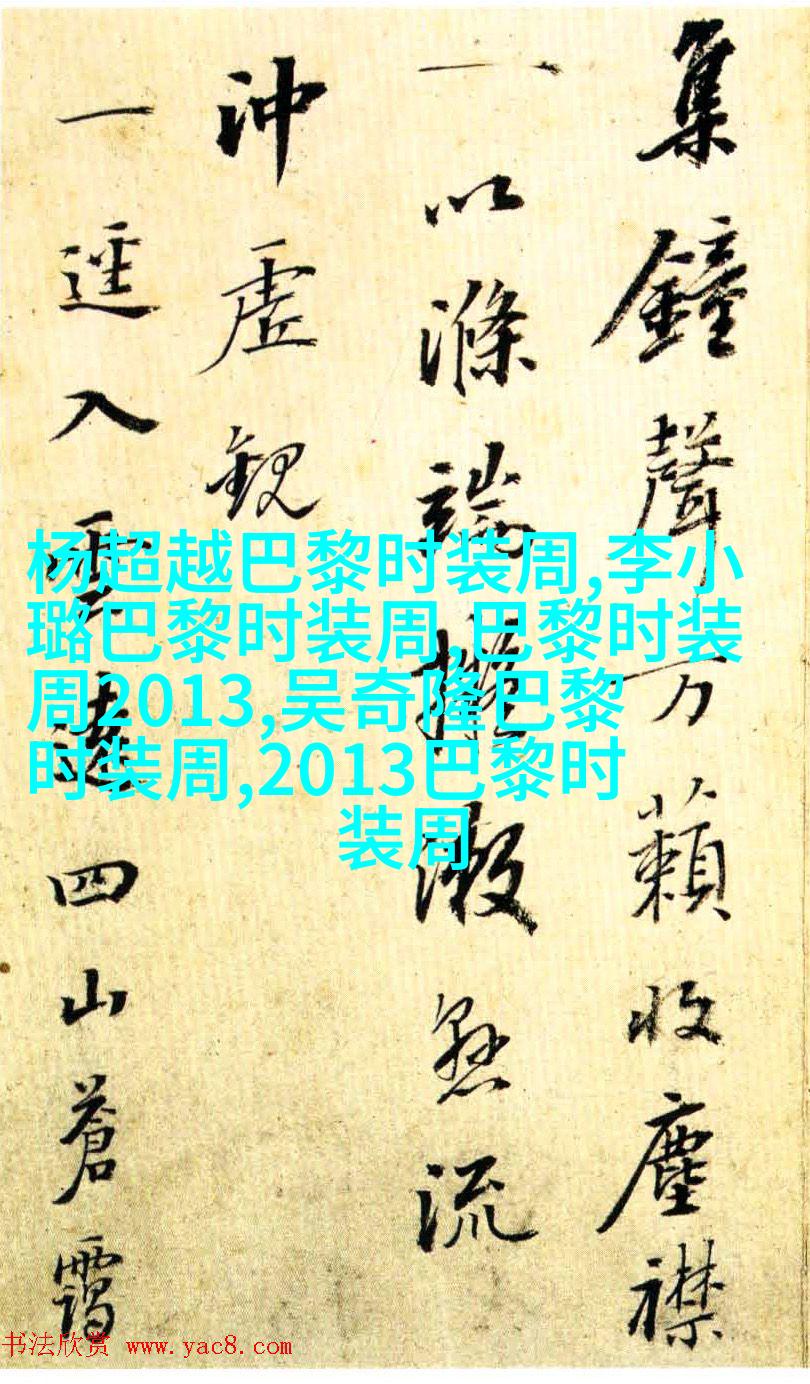 集鐘聲万籟收塵襟
一以滌端漱懸流
沖虛觀
一逕入雲四山蒼靄
杨超越巴黎时装周,李小
璐巴黎时装周,巴黎时装
周2013,吴奇隆巴黎
时装周,2013巴黎时
装周
书法欣赏 www.yac8.com